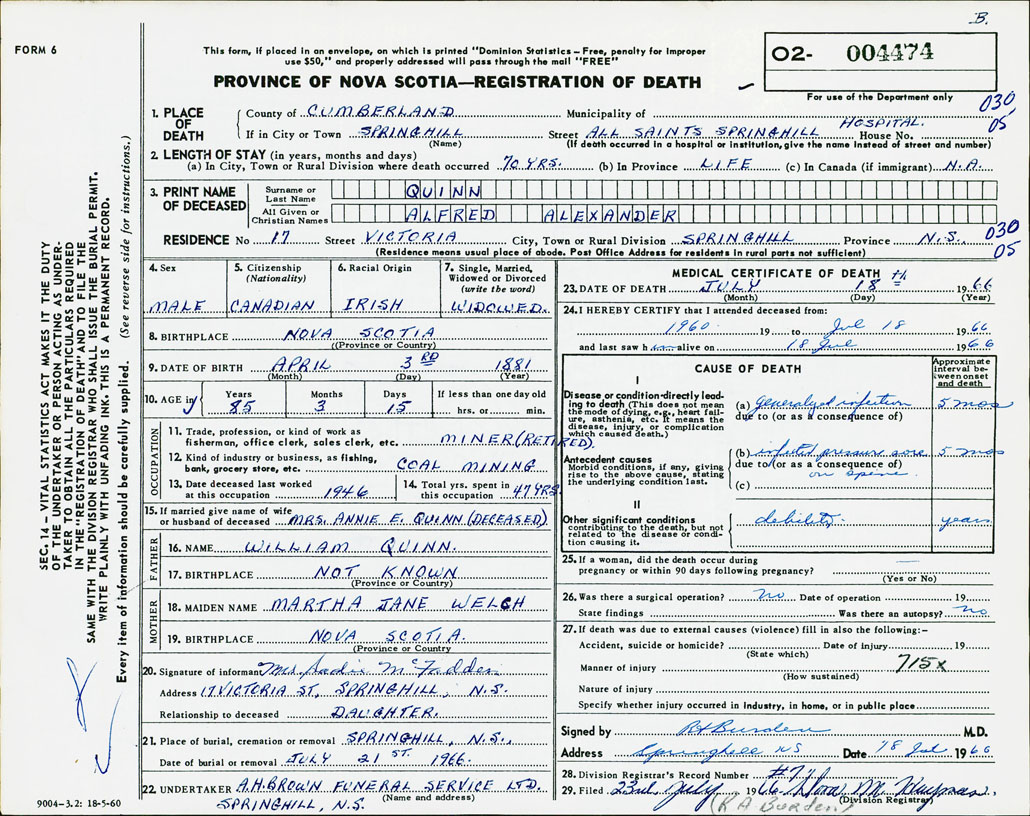 B.
FORM 6
This form, if placed in an envelope, on which is printed "Dominion Statistics – Free, penalty for improper
use $50," and properly addressed will pass through the mail "FREE"
PROVINCE OF NOVA SCOTIA—REGISTRATION OF DEATH
O2- 004474
For use of the Department only
030
05
1. PLACE OF DEATH
County of CUMBERLAND Municipality of
If in City or Town SPRINGHILL Street ALL SAINTS SPRINGHILL HOSPITAL. House No.
(Name) (If death occurred in a hospital or institution, give the name instead of street and number)
2. LENGTH OF STAY (in years, months and days)
(a) In City, Town or Rural Division where death occurred 70 YRS. (b) In Province LIFE (c) In Canada (if immigrant) N.A.
3. PRINT NAME OF DECEASED
Surname or Last Name QUINN
All Given or Christian Names ALFRED ALEXANDER
RESIDENCE No 17 Street VICTORIA City, Town or Rural Division SPRINGHILL Province N.S. 030
(Residence means usual place of abode. Post Office Address for residents in rural parts not sufficient) 05
4. Sex
MALE
5. Citizenship
(Nationality)
CANADIAN
6. Racial Origin
IRISH
7. Single, Married,
Widowed or Divorced
(write the word)
WIDOWED.
8. BIRTHPLACE NOVA SCOTIA
(Province or Country)
9. DATE OF BIRTH APRIL 3RD 1881
(Month) (Day) (Year)
10. AGE in
Years Months Days If less than one day old
85 3 15 hrs. or min.
OCCUPATION
11. Trade, profession, or kind of work as
fisherman, office clerk, sales clerk, etc. MINER (RETIRED).
12. Kind of industry or business, as fishing,
bank, grocery store, etc. COAL MINING
13. Date deceased last worked
at this occupation 1946
14. Total yrs. spent in
this occupation 47 YRS.
15. If married give name of wife
or husband of deceased MRS. ANNIE E. QUINN (DECEASED)
FATHER
16. NAME WILLIAM QUINN.
17. BIRTHPLACE NOT KNOWN
(Province or Country)
MOTHER
18. MAIDEN NAME MARTHA JANE WELCH
19. BIRTHPLACE NOVA SCOTIA.
(Province or Country
20. Signature of informant Mrs Sadie McFadden
Address 17 VICTORIA ST, SPRINGHILL, N.S.
Relationship to deceased DAUGHTER.
21. Place of burial, cremation or removal SPRINGHILL, N.S.,
Date of burial or removal JULY 21ST. 1966.
22. UNDERTAKER A.H. BROWN FUNERAL SERVICE LTD.
(Name and address)
SPRINGHILL, N.S.
MEDICAL CERTIFICATE OF DEATH
23. DATE OF DEATH JULY 18th 1966
(Month) (Day) (Year)
24. I HEREBY CERTIFY that I attended deceased from:
1960 19 to Jul 18 1966
and last saw him alive on 18 Jul 1966
CAUSE OF DEATH
Approximate
interval be-
tween onset
and death
I
Disease or condition directly lead-
ing to death (This does not mean
the mode of dying, e.g., heart fail-
ure, asthenia, etc. It means the
disease, injury, or complication
which caused death.)
(a) Generalyed infection 5 mos
due to (or as a consequence of)
Antecedent causes
Morbid conditions, if any, giving
rise to the above cause, stating
the underlying condition last.
(b) infected pressure sore 5 mos
due to (or as a consequence of)
on spine
(c)
II
Other significant conditions
contributing to the death, but not
related to the disease or condi-
tion causing it.
debility. years
25. If a woman, did the death occur during
pregnancy or within 90 days following pregnancy? —
(Yes or No)
26. Was there a surgical operation? no Date of operation 19
State findings Was there an autopsy? no
27. If death was due to external causes (violence) fill in also the following:–
Accident, suicide or homicide? Date of injury 19
(State which)
Manner of injury 715x
(How sustained)
Nature of injury
Specify whether injury occurred in industry, in home, or in public place
Signed by RA Burden M.D.
Address Springhill NS Date 18 Jul 1966
28. Division Registrar's Record Number #77
29. Filed 23rd July 1966 Nora M.
(Division Registrar)
(R A Burden)
SEC. 14 – VITAL STATISTICS ACT MAKES IT THE DUTY
OF THE UNDERTAKER OR PERSON ACTING AS UNDER-
TAKER TO OBTAIN ALL THE PARTICULARS REQUIRED
IN THE "REGISTRATION OF DEATH" AND TO FILE THE
SAME WITH THE DIVISION REGISTRAR WHO SHALL ISSUE THE BURIAL PERMIT.
WRITE PLAINLY WITH UNFADING INK. THIS IS A PERMANENT RECORD.
Every item of information should be carefully supplied. (See reverse side for instructions.)
9004–3.2: 18-5-60